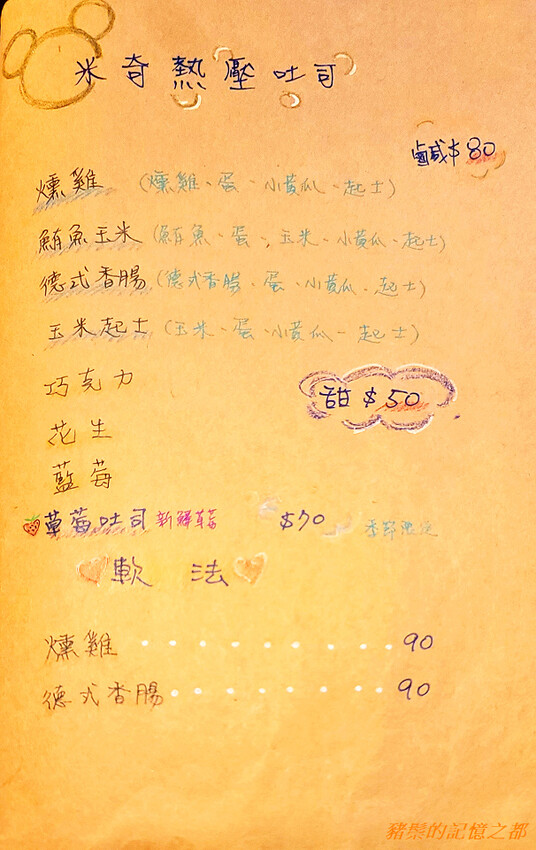 米奇熱壓吐司
鹹$80
燻雞 (燻雞、蛋、小黃瓜、起士)
鮪魚玉米 (鮪魚、蛋、玉米、小黃瓜、起士)
德式香腸 (德式香腸、蛋、小黃瓜、起士)
玉米起士 (玉米、蛋、小黃瓜、起士)
巧克力
甜 $50
花生
藍莓
草莓吐司 新鮮草莓 $70 季節限定
軟 法
燻雞 ......... 90
德式香腸 ........ 90
豬鬃的記憶之都